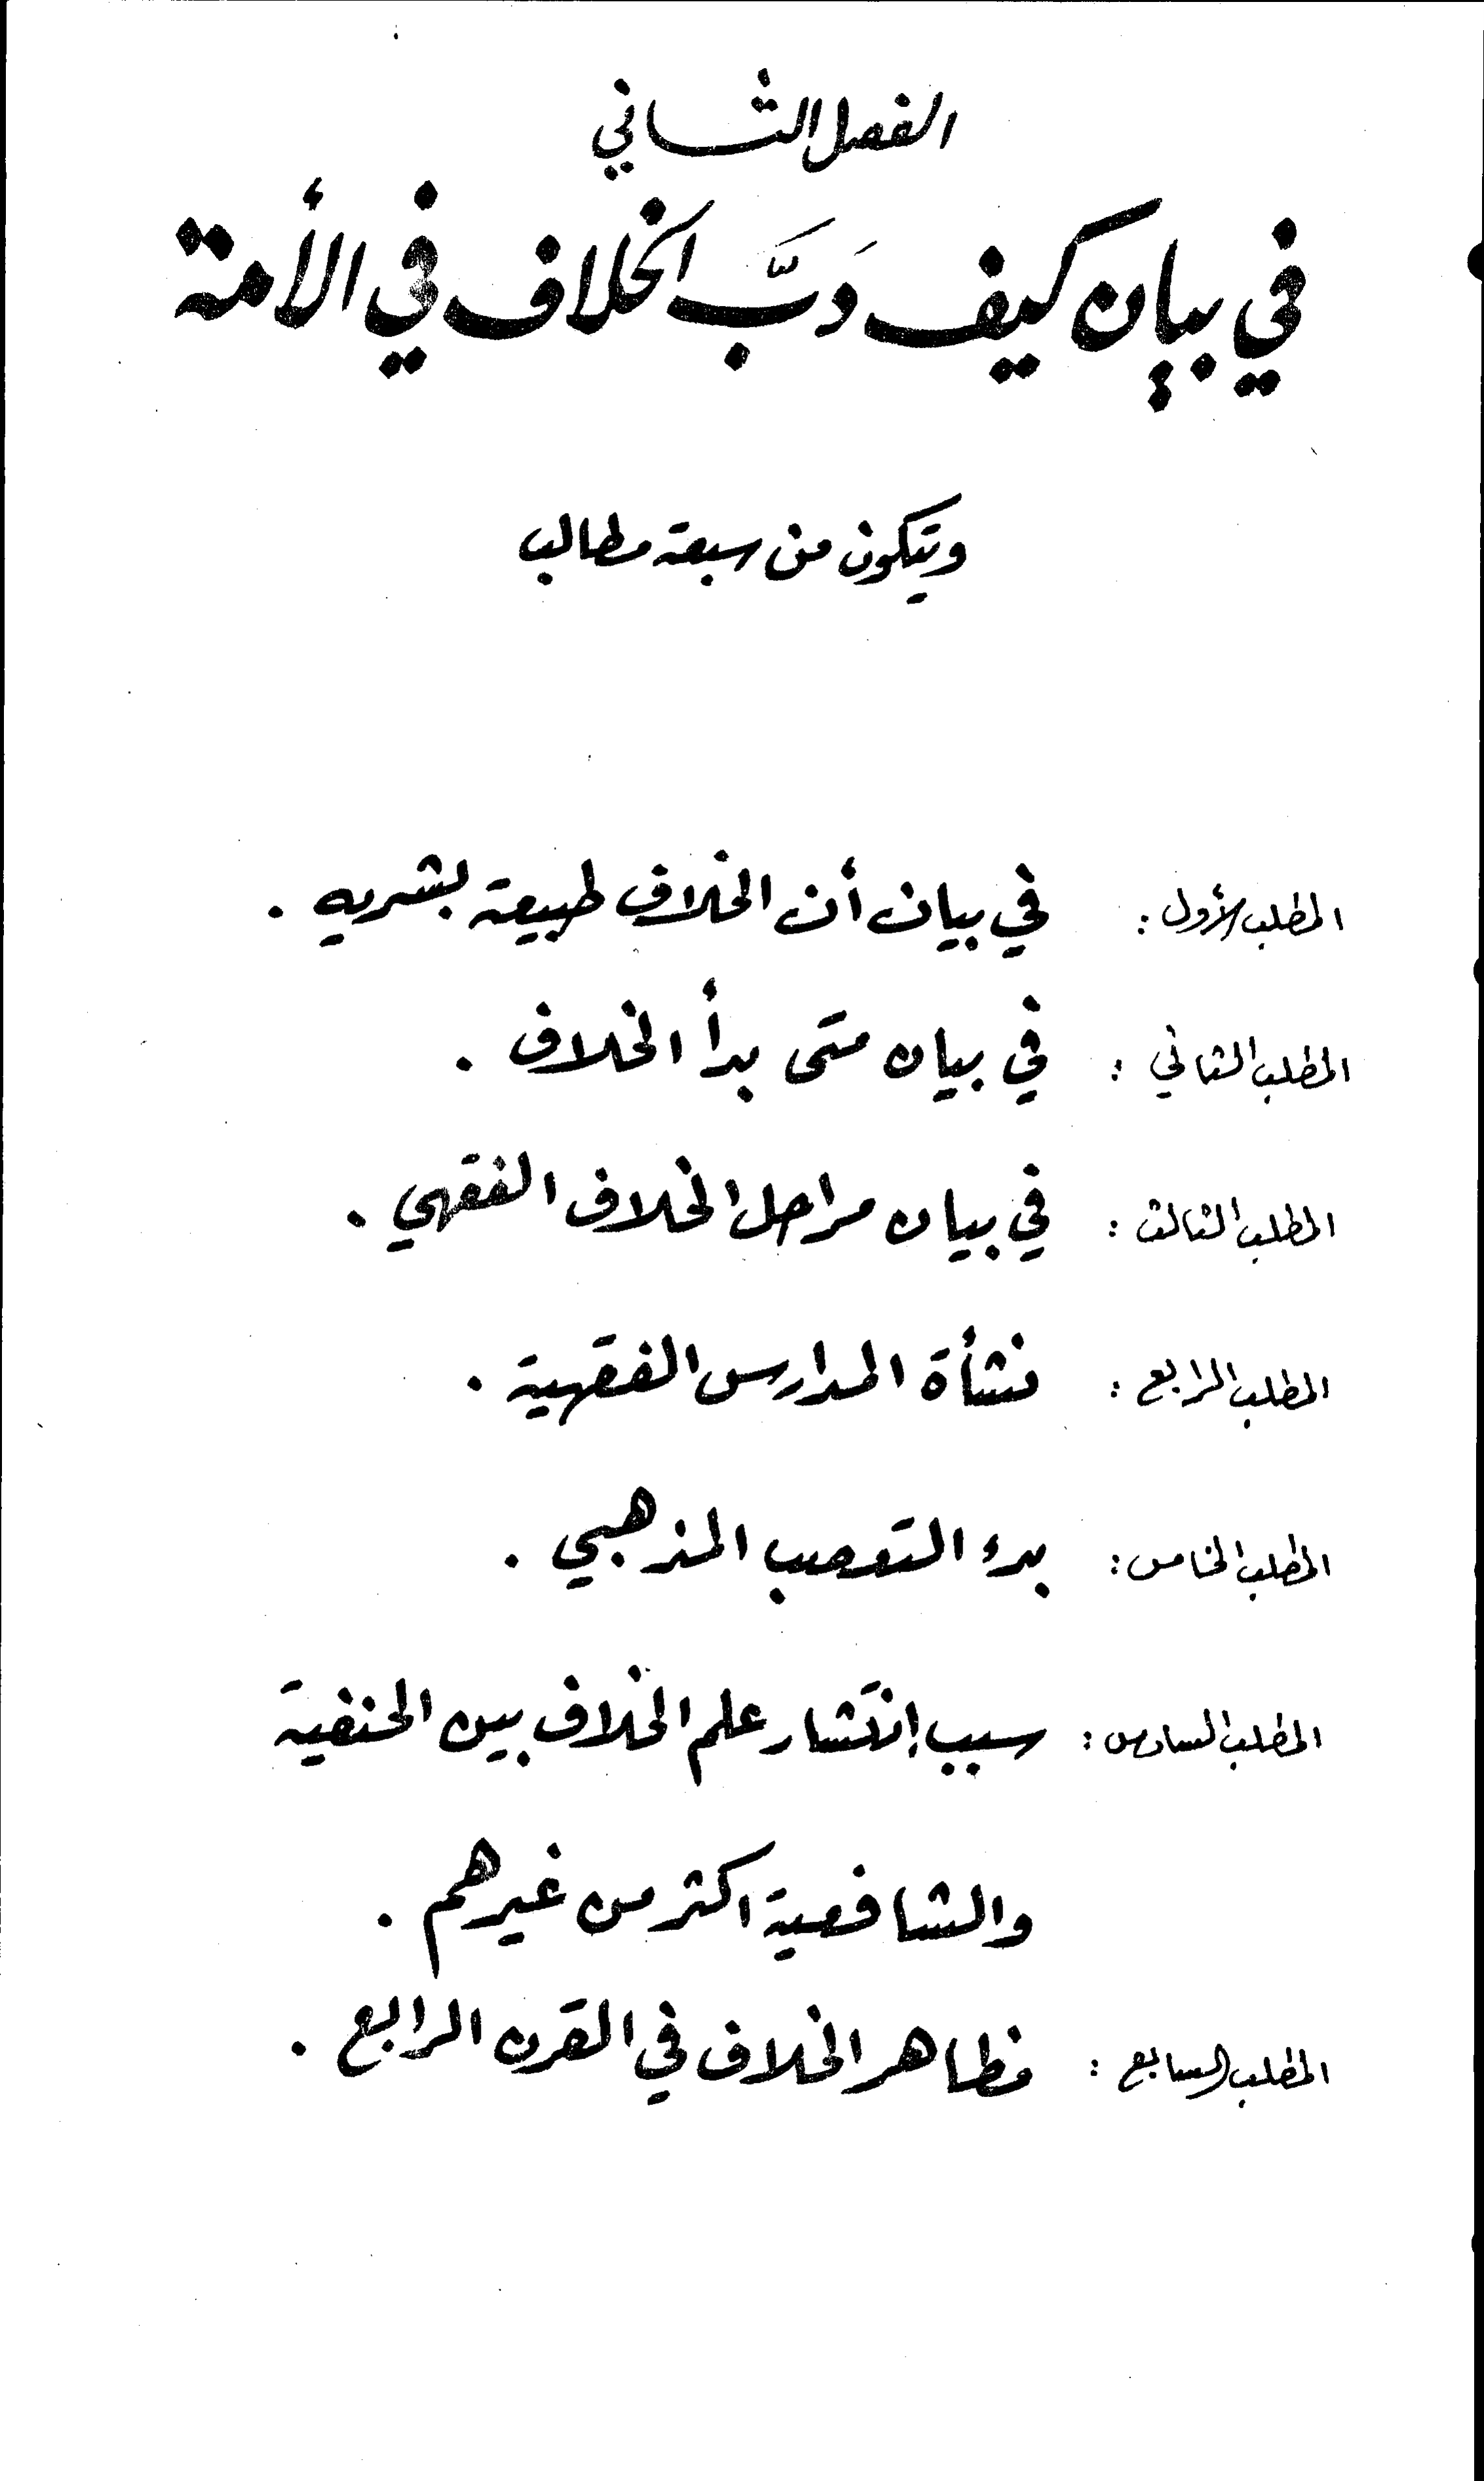 الفصل الثاني
في بيان كيف دَبَّ الخلاف في الأمة
ويتكون من سبعة مطالب
المطلب الأول : في بيان أن الخلاف طبيعة بشريه .
المطلب الثاني : في بيان متى بدأ الخلاف .
المطلب الثالث : في بيان مراحل الخلاف الفقهي .
المطلب الرابع : نشأة المدارس الفقهية .
المطلب الخامس : بدء التعصب المذهبي .
المطلب السادس : سبب إنتشار علم الخلاف بين الحنفية
والشافعية اكثر من غيرهم .
المطلب السابع : مظاهر الخلاف في القرن الرابع .